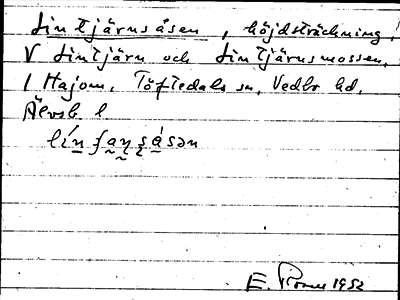 Lintjärnsåsen, höjdsträckning,
V Lintjärn och Lintjärnsmossen.
I Hajom, Töftedals sn, Vedbo hd,
Älvsb l
1952